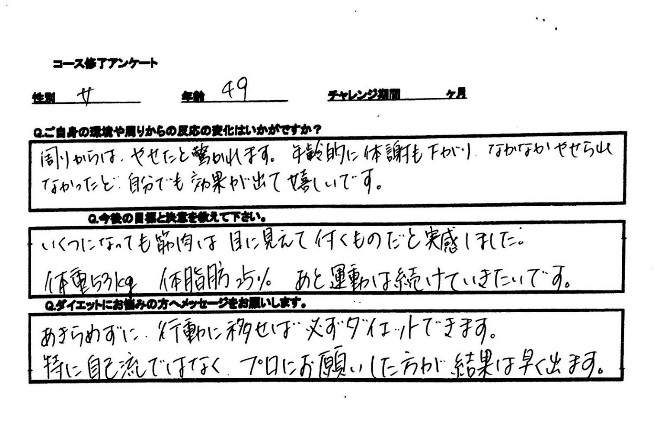 コース修了アンケート
性別 女 年齢 49 チャレンジ期間 ヶ月
Q.ご自身の環境や周りからの反応の変化はいかがですか？
周りからは、やせたと驚かれます。年齢的に体謝も下がり、なかなかやせられ
なかったと、自分でも効果が出て嬉しいです。
Q.今後の目標と決意を教えて下さい。
いくつになっても筋肉は目に見えて付くものだと実感しました。
体重53kg 体脂肪25% あと運動は続けていきたいです。
Q.ダイエットにお悩みの方へメッセージをお願いします。
あきらめずに、行動に移せば必ずダイエットできます。
特に自己流ではなく、プロにお願いした方が結果は早く出ます。